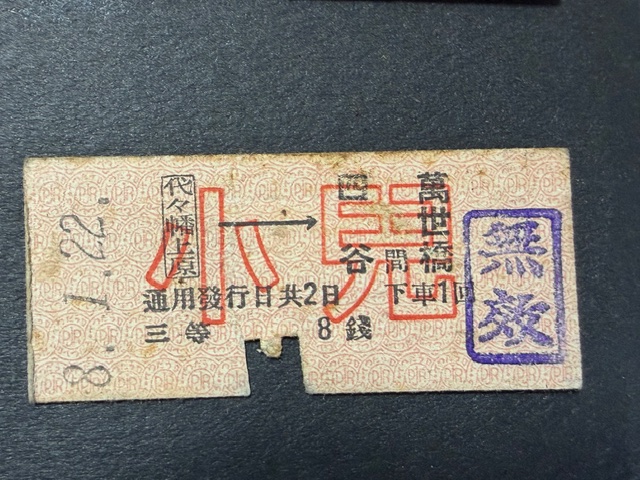 8. 1.22.
小児
代々幡上原 → 四谷 萬世橋 間
通用發行日共2日 下車1回
三等 8錢
無效